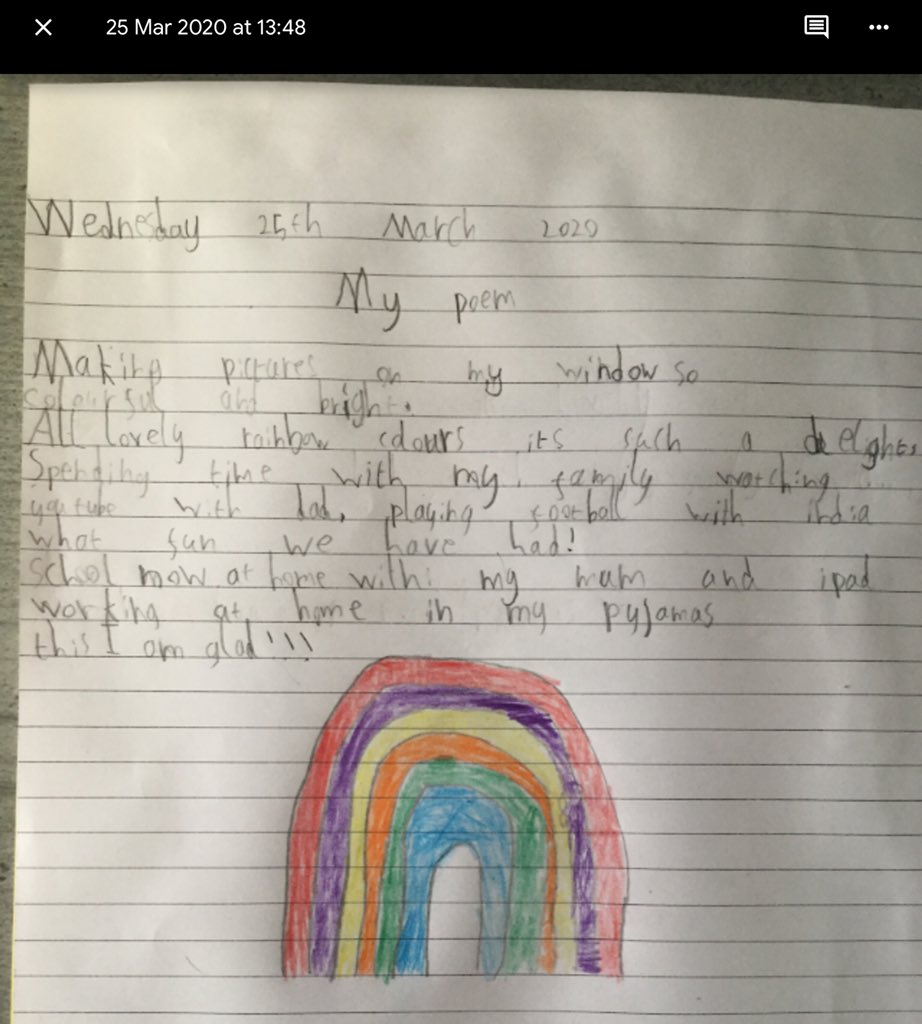 25 Mar 2020 at 13:48
Wednesday 25th March 2020
My poem
Making pictures on my window so
colourful and bright.
All lovely rainbow colours its such a delights
Spending time with my family watching
youtube with dad, playing football with india
what fun we have had!
School now at home with my mum and ipad
working at home in my pyjamas
this I am glad!!!